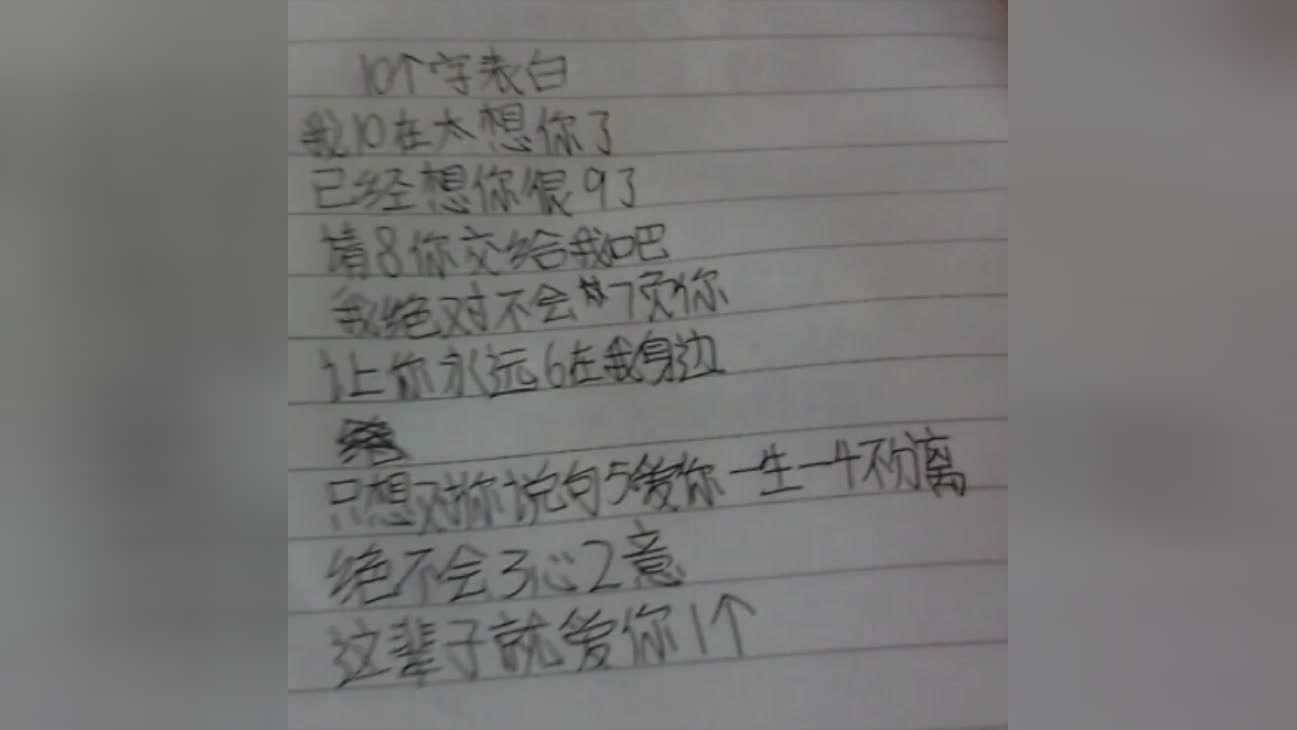 10个字表白
我10在太想你了
已经想你很9了
请8你交给我吧
我绝对不会7负你
让你永远6在我身边
只想对你说句5爱你一生一4不分离
绝不会3心2意
这辈子就爱你1个